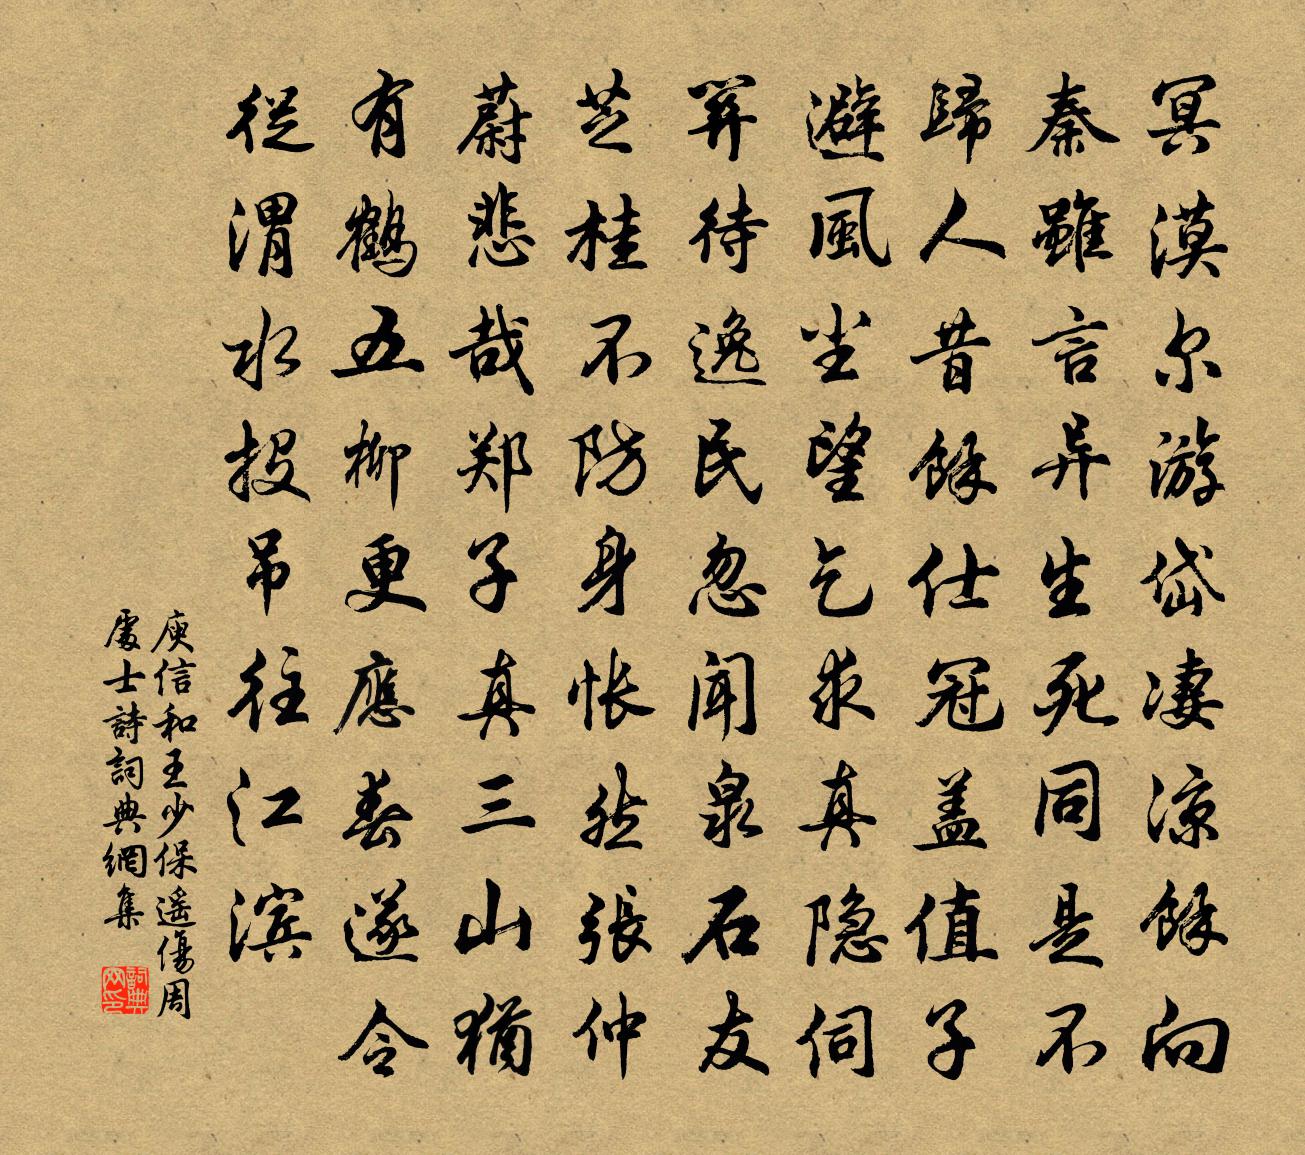 冥漠尔游岱凄凉餘向
秦雖言异生死同是不
歸人昔餘仕冠盖值子
避風尘望乞求真隐伺
笄待逸民忽闻泉石友
芝桂不防身怅然張仲
蔚悲哉郑子真三山猶
有鶴五柳更應春遂令
従渭水投吊往江滨
庾信和王少保遥傷周
處士詩詞典網集
詞典网印